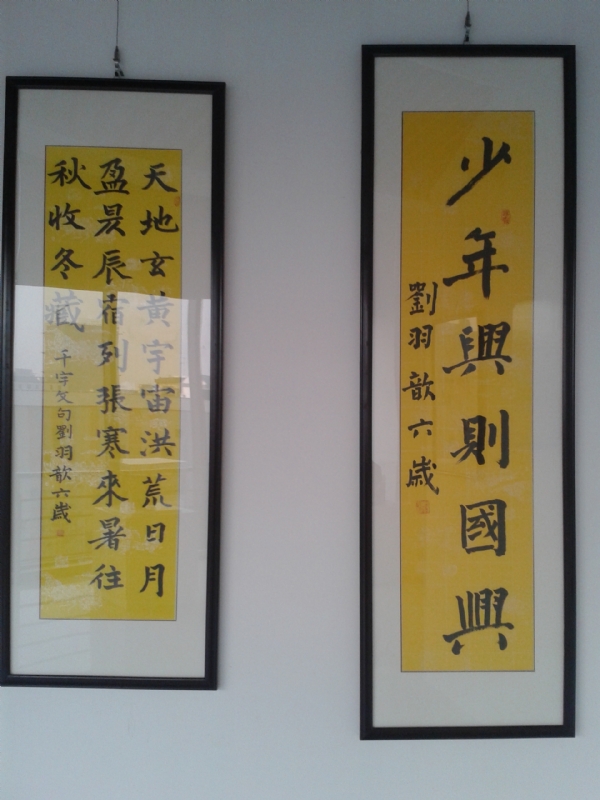 少年興則國興
劉羽歆六歲
天地玄黄宇宙洪荒日月
盈昃辰宿列張寒來暑往
秋收冬藏
千字文句劉羽歆六歲